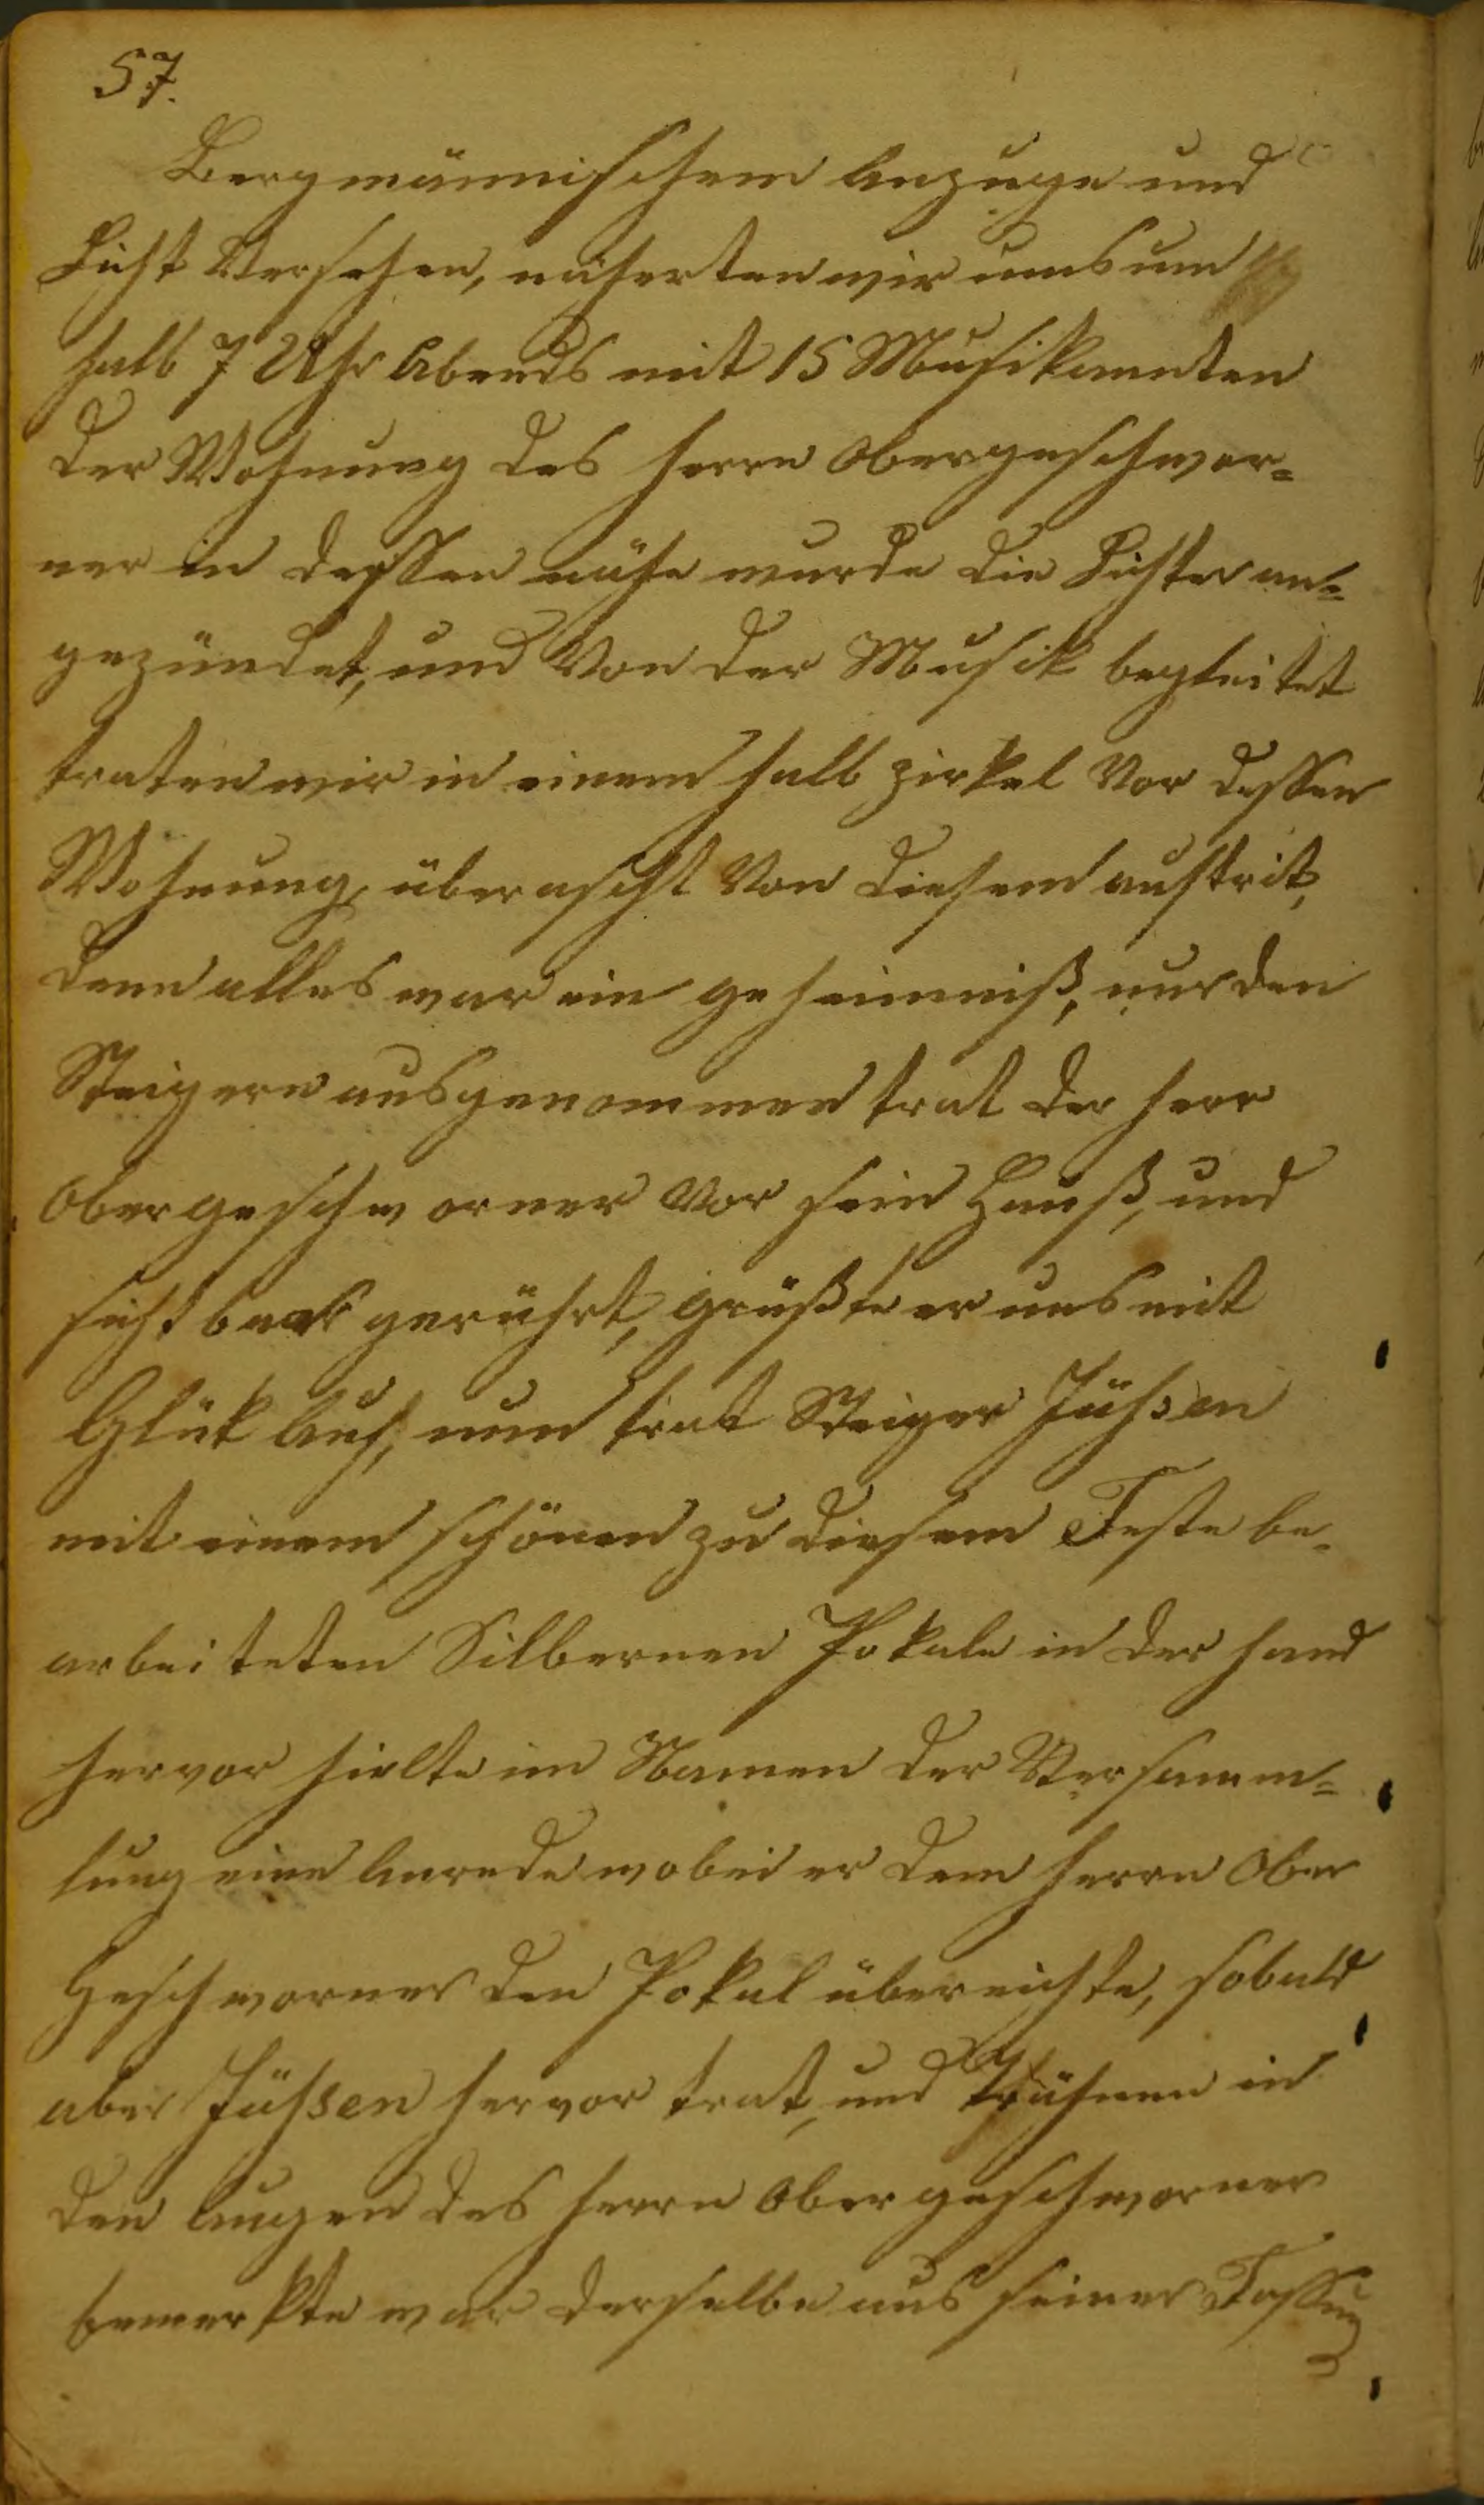 57.
Bergmännischem Anzuge und
Licht Versehen, näherten wir uns um
halb 7 Uhr Abends mit 15 Musikannten
der Wohnung des Herrn Obergeschwor=
ner in dessen nähe wurde die Lichter an=
gezündet, und Von der Musik begleitet
traten wir in einem halb zirkel Vor dessen
Wohnung, überascht Von diesem auftrit,
denn alles war ein geheimniß, nur den
Steigern ausgenommen trat der Herr
Obergeschworner Vor sein Hauß, und
sichtbar gerührt, grüßte er uns mit
Glük Auf, nun trat Steiger Jühsen
mit einem schönen zu diesem Feste be=
arbeiteten Silbernen Pokale in der Hand
hervor hielte im Namen der Versamm=
lung eine Anrede wobei er dem Herrn Ober
Geschworner den Pokal übereichte, sobald
aber Jühsen hervor trat, und Trähnen in
den Augen des Herrn Obergeschworner
bemerkte war derselbe aus seiner Fassung